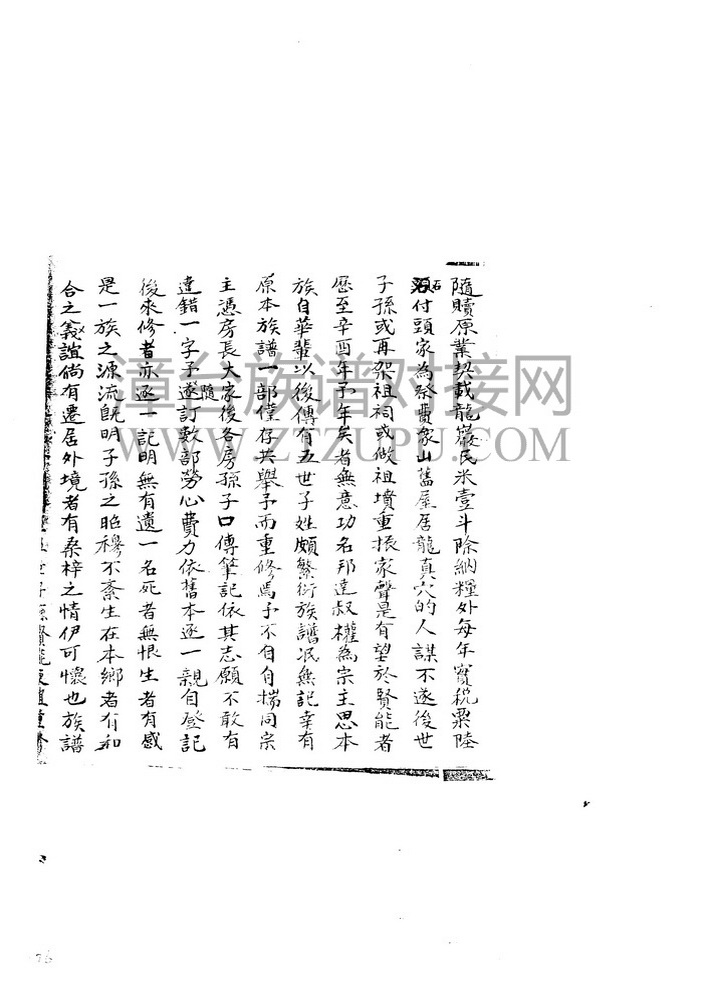 隨贖原業契載龍巖民米壹斗除納糧外每年實稅粟陸
石付頭家為祭費象山舊屋居龍真穴的人謀不遂後世
子孫或再架祖祠或做祖墳重振家聲是有望於賢能者
歷至辛酉年予年矣者無意功名邦達叔權為宗主思本
族自華輩以後傳有五世子姓頗繁衍族譜泯無記幸有
原本族譜一部僅存共舉予而重修焉予不自自揣同宗
主憑房長大家後各房孫子口傳筆記依其志願不敢有
隨
違錯一字予遂訂數部勞心費力依舊本逐一親自登記
後來修者亦逐一記明無有遺一名死者無恨生者有感
是一族之源流既明子孫之昭穆不紊生在本鄉者有和
合之義誼倘有遷居外境者有桑梓之情伊可懷也族譜
漳台族谱对接网
WWW.ZTZUPU.COM
76